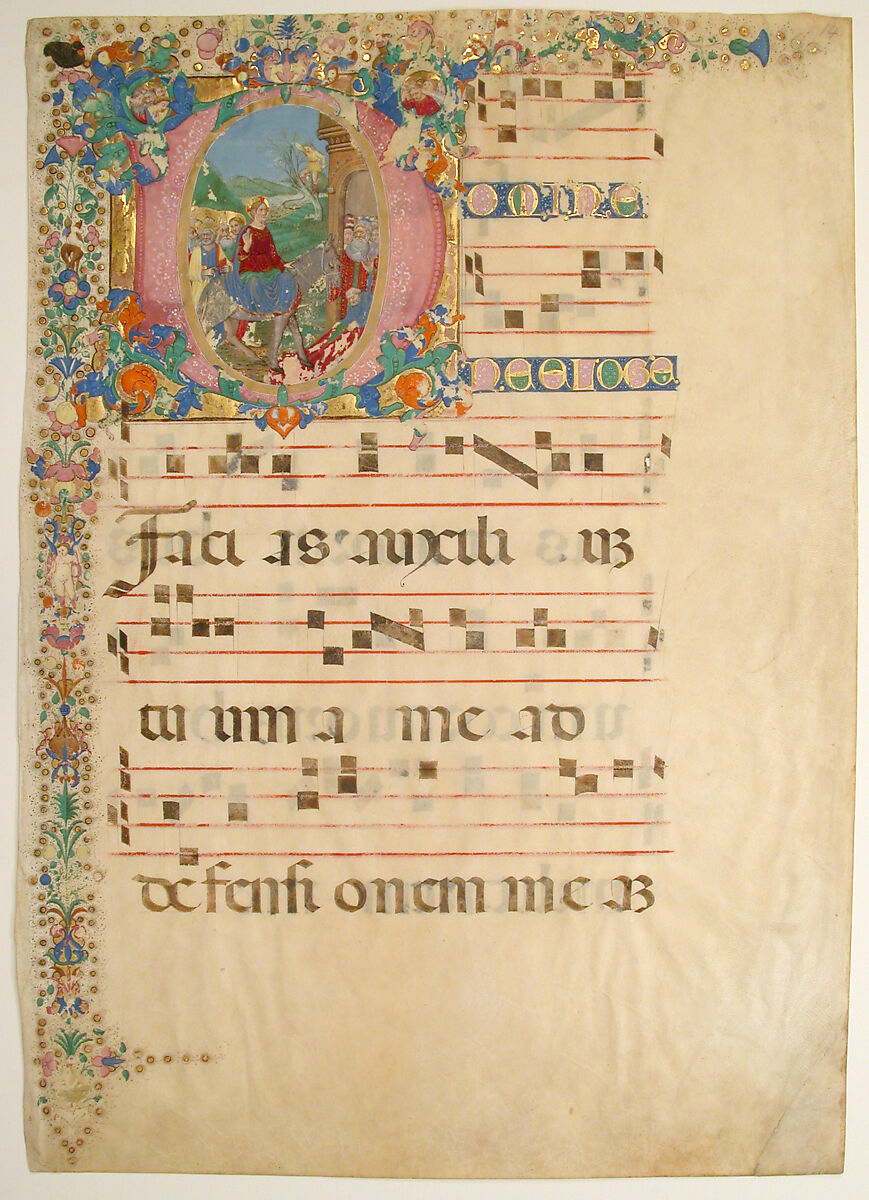 Domine
Faci as auxili uʒ
tu um a me ad
de fensi onem me aʒ